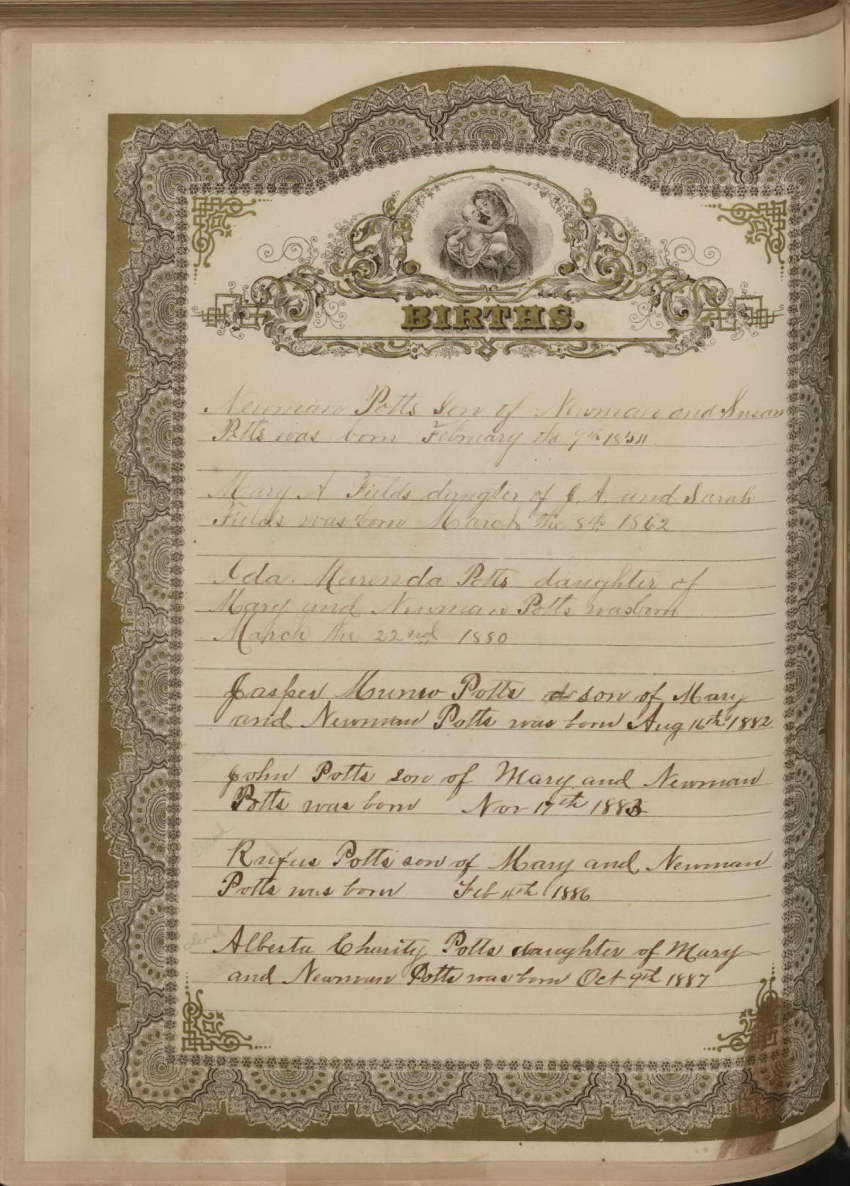 BIRTHS.
Newman Potts Son of Newman and Susan
Potts was born February the 9th 1854
Mary A Fields daugter of J. A. and Sarah
Fields was born March the 8th 1862
Ida Marinda Potts daughter of
Mary and Newman Potts was born
March the 22nd 1880
Jasper Munro Potts son of Mary
and Newman Potts was born Aug 16th 1882
John Potts son of Mary and Newman
Potts was born Nov 17th 1883
Rufus Potts son of Mary and Newman
Potts was born Feb 4th 1886
Alberta Charity Potts daughter of Mary
and Newman Potts was born Oct 9th 1887
dead